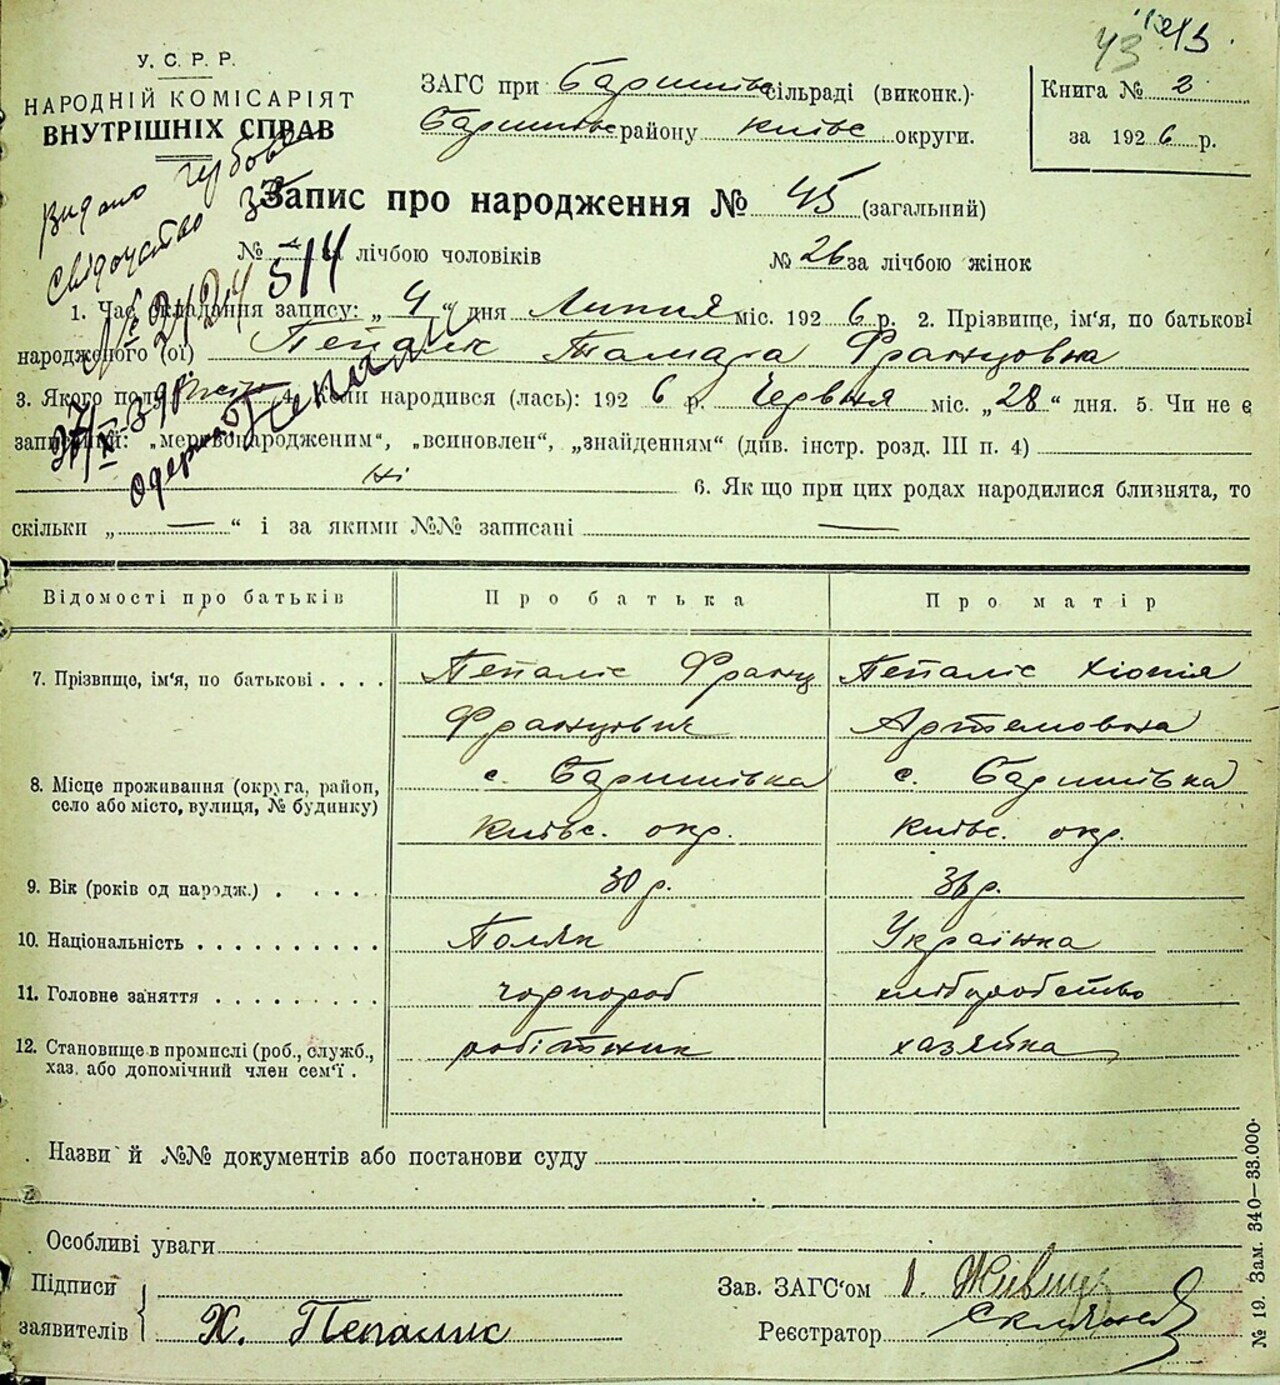 43 213.
У. С. Р. Р.
НАРОДНІЙ КОМІСАРІЯТ
ВНУТРІШНІХ СПРАВ
ЗАГС при Баришівс сільраді (виконк.)
Баришівс району Київс округи.
Книга № 2
за 1926 р.
Видано гербове
свідоцтво за
№ 514
Одержав
Запис про народження № 45 (загальний)
№ — за лічбою чоловіків
№ 26 за лічбою жінок
1. Час складання запису: „ 4 “ дня Липня міс. 1926 р. 2. Прізвище, ім'я, по батькові
народженого (ої) Пепаліс Тамара Францовна
3. Якого полу жін 4. Коли народився (лась): 1926 р. Червня міс. „28“ дня. 5. Чи не є
записаний: „мертвонародженим“, „всиновлен“, „знайденням“ (див. інстр. розд. III п. 4)
ні 6. Як що при цих родах народилися близнята, то
скільки „ — “ і за якими №№ записані —
Відомості про батьків
Про батька
Про матір
7. Прізвище, ім'я, по батькові . . . .
Пепаліс Франц
Францович
Пепаліс Хіонія
Артемовна
8. Місце проживання (округа, район,
село або місто, вулиця, № будинку)
с. Баришівка
Київс. окр.
с. Баришівка
Київс. окр.
9. Вік (років од народж.) . . . . .
30 р.
36 р.
10. Національність . . . . . . . . . .
Поляк
Українка
11. Головне заняття . . . . . . . . .
чорнороб
хліборобство
12. Становище в промислі (роб., служб.,
хаз. або допомічний член сем'ї .
робітник
хазяйка
Назви й №№ документів або постанови суду
Особливі уваги
Підписи
заявителів
Х. Пепалис
Зав. ЗАГС'ом
Реєстратор
№ 19. Зам. 340—33.000.